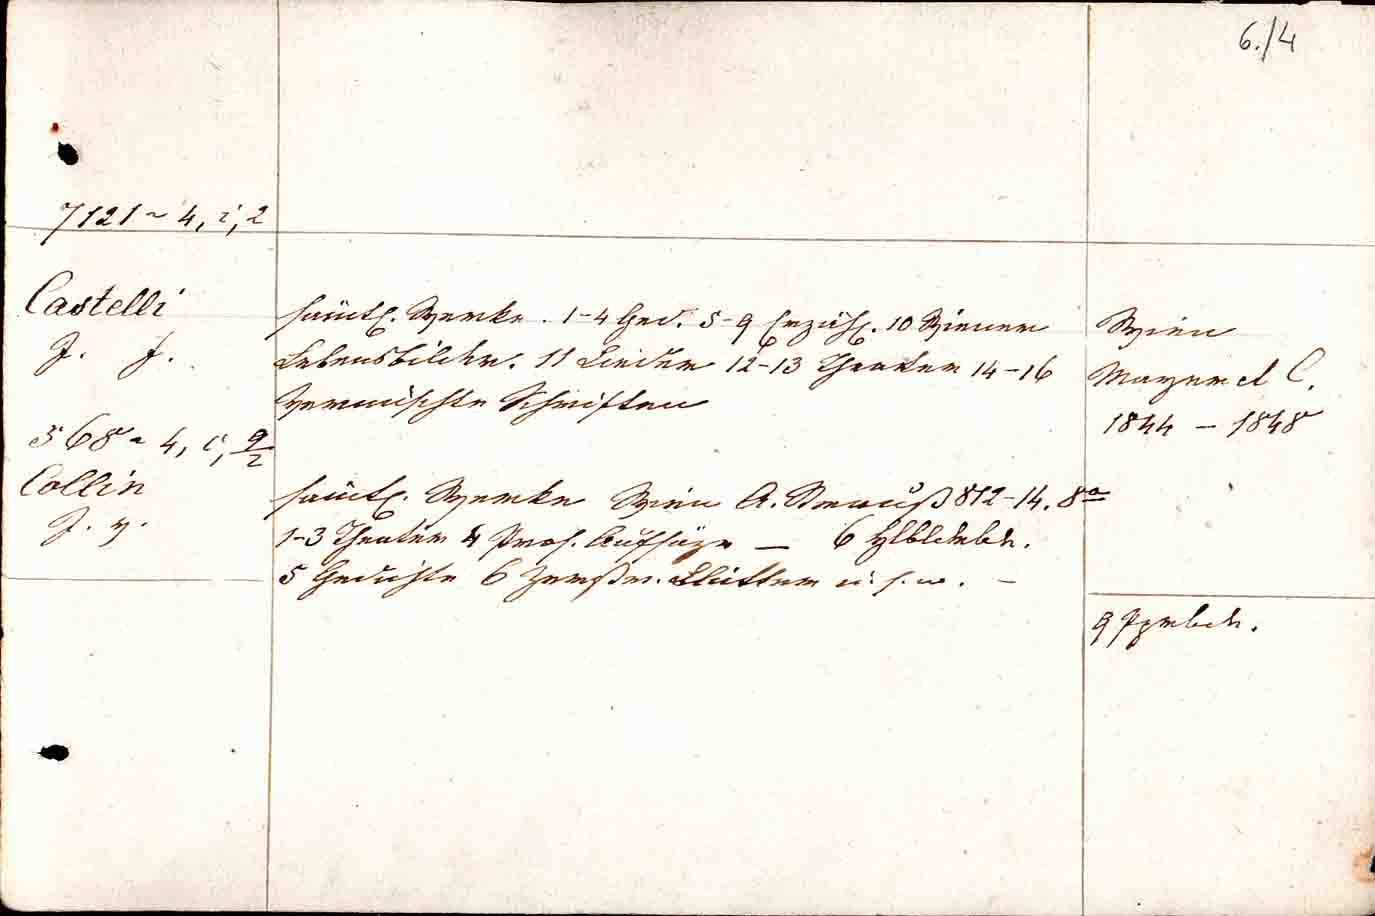 6./4
7121 ~ 4, i, 2
Castelli
J. F.
sämtl. Werke. 1-4 Ged. 5-9 Erzähl. 10 Wiener
Lebensbilder. 11 Lieder 12-13 Theater 14-16
Vermischte Schriften
Wien
Mayer et C.
1844 - 1848
568 ~ 4, i, 9/2
Collin
J. v.
sämtl. Werke Wien A. Strauß 812-14. 8º
1-3 Theater 4 Pros. Aufsäze — 6 Hlbldrbde.
5 Gedichte 6 Zerstr. Blätter u. s. w. —
9 Pprbde.